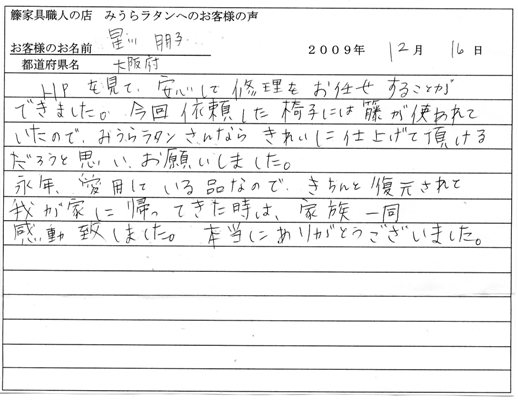 籐家具職人の店　みうらラタンへのお客様の声
お客様のお名前　星川　朋子
2009年　12月　16日
都道府県名　大阪府
HPを見て、安心して修理をお任せすることが
できました。今回依頼した椅子には籐が使われて
いたので、みうらラタンさんなら きれいに仕上げて頂ける
だろうと思い、お願いしました。
永年、愛用している品なので、きちんと復元されて
我が家に帰ってきた時は、家族一同
感動致しました。本当にありがとうございました。